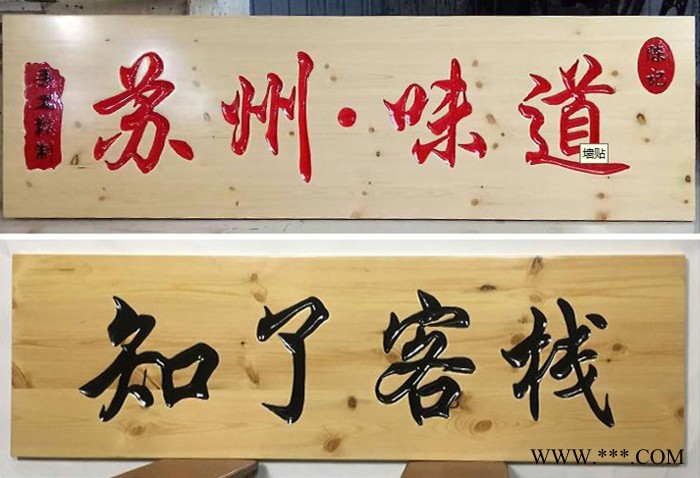 苏州·味道
陈记
墙贴
知了客栈
WWW.***.COM